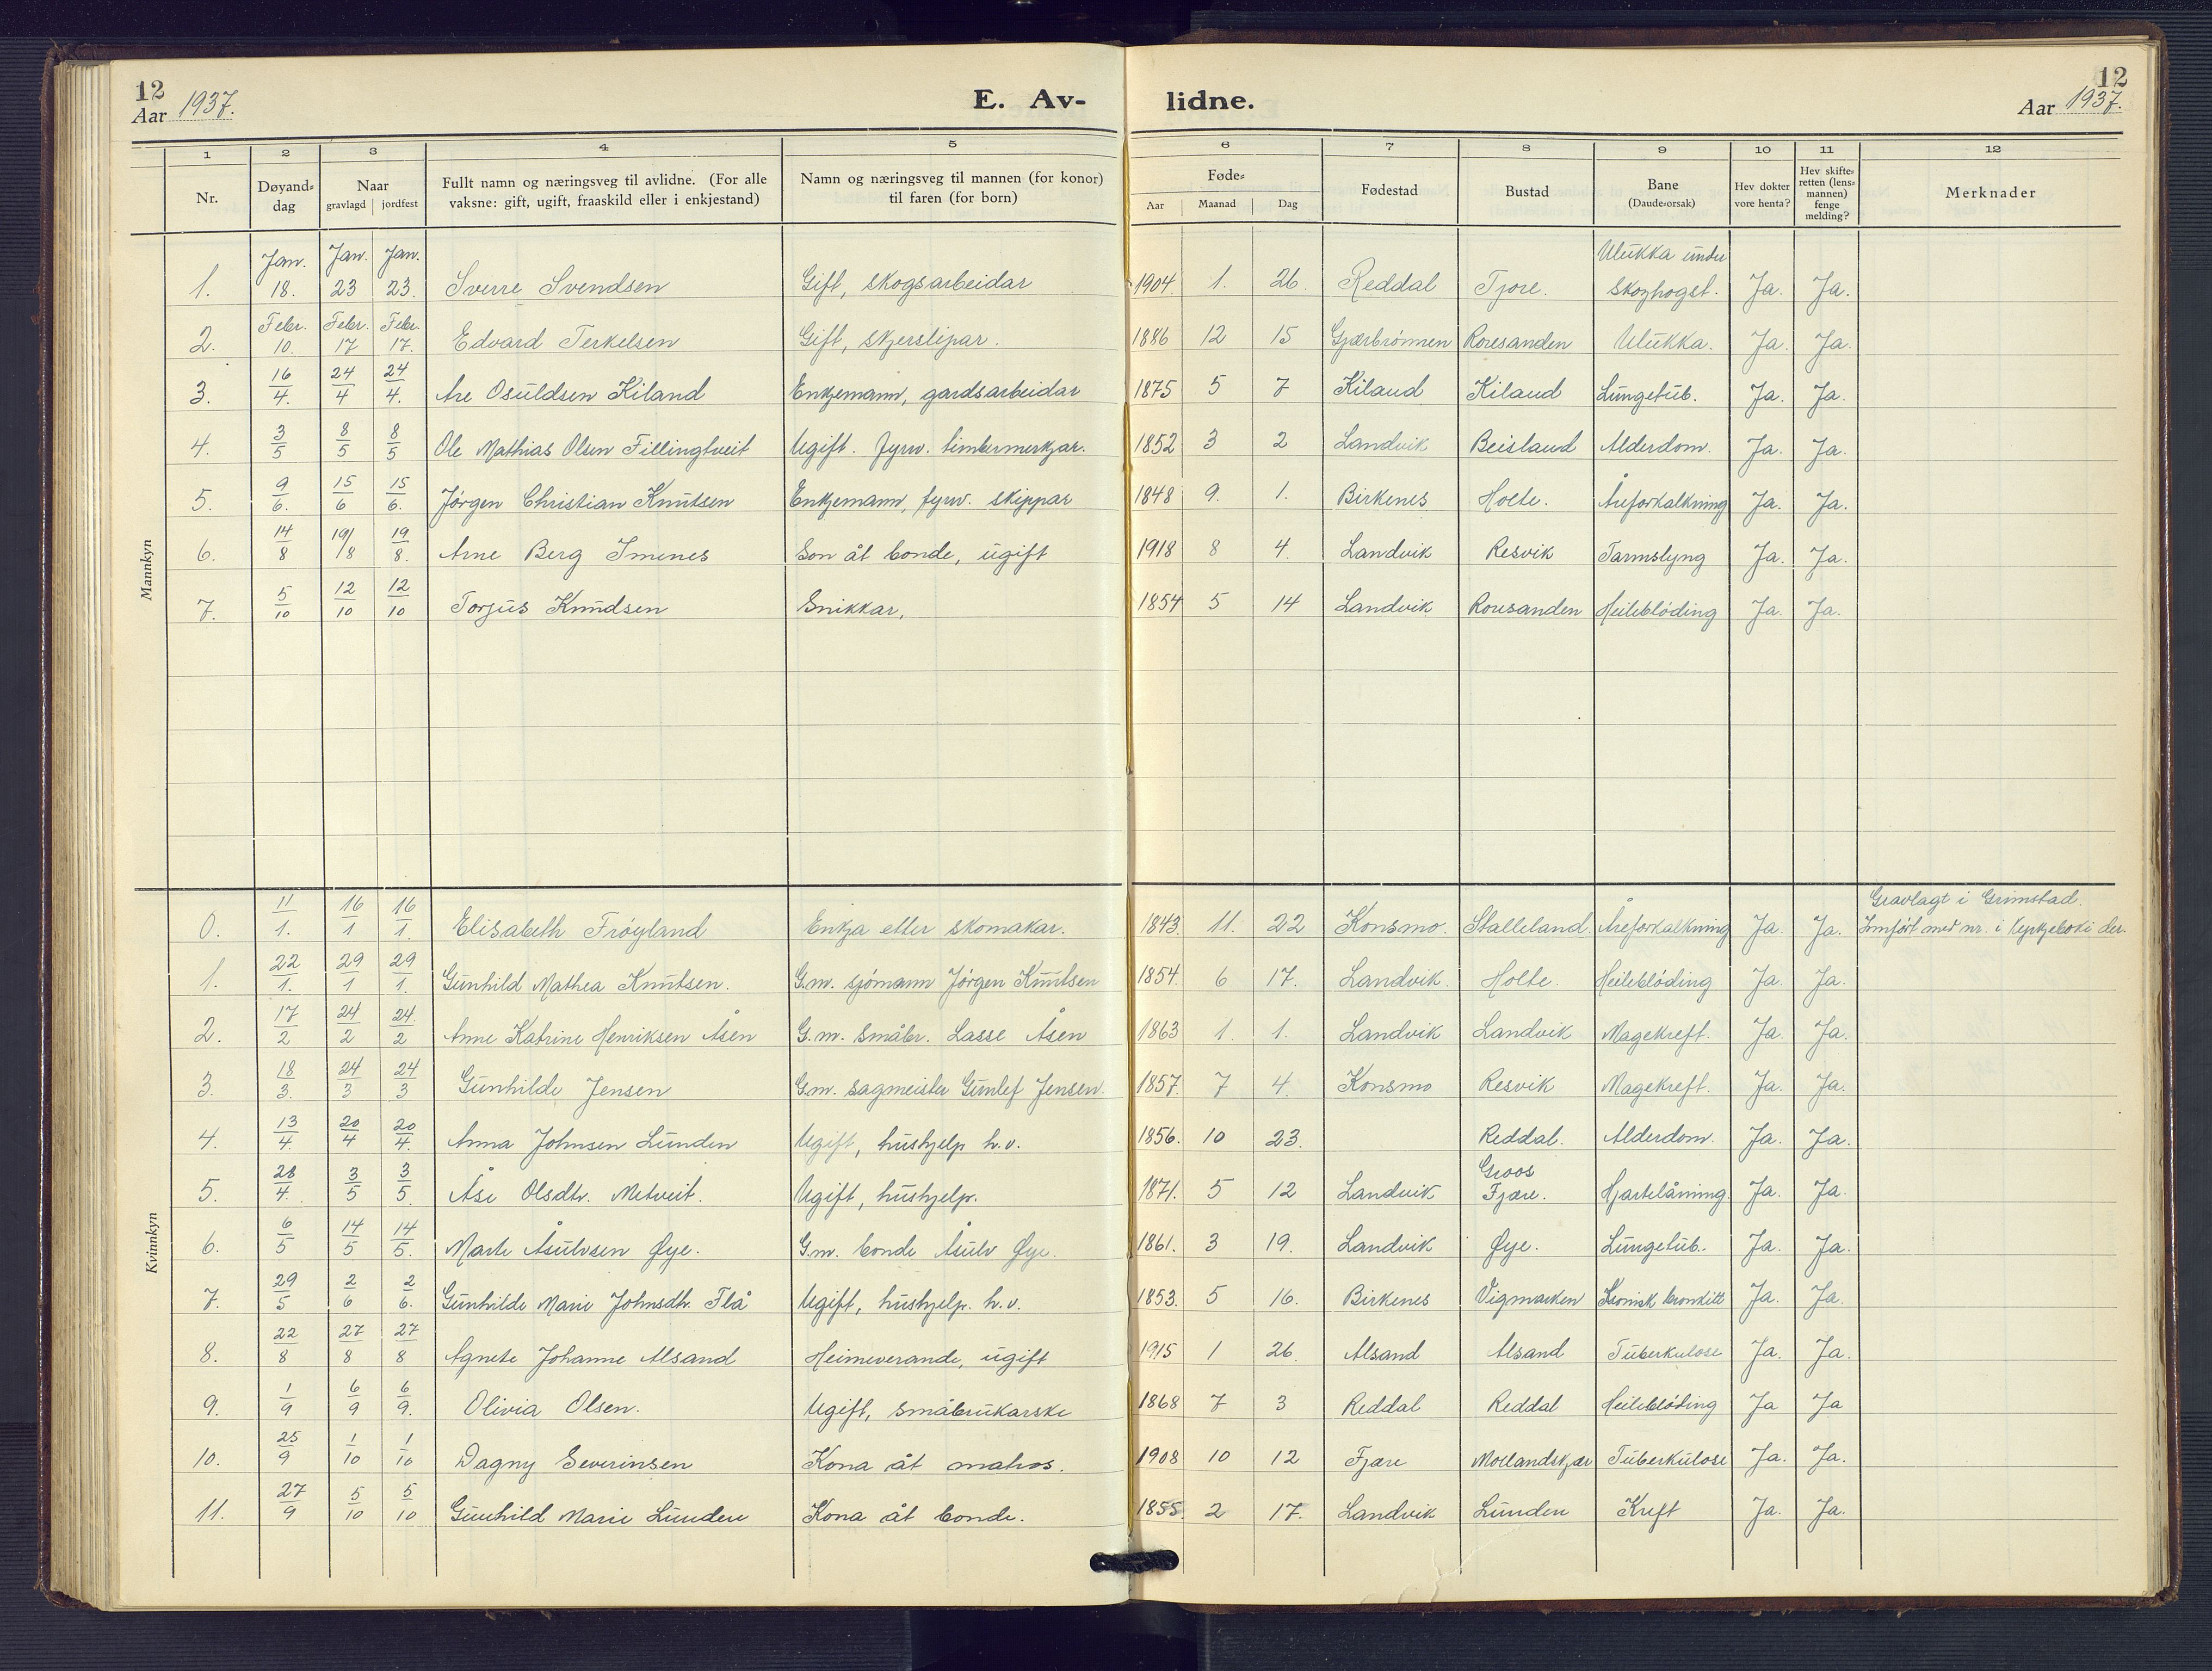 12
Aar 1937.
E. Av-
lidne.
12
Aar 1937.
1 2 3 4 5 6 7 8 9 10 11 12
Nr. | Døyand=dag | Naar gravlagd | jordfest | Fullt namn og næringsveg til avlidne. (For alle vaksne: gift, ugift, fraaskild eller i enkjestand) | Namn og næringsveg til mannen (for konor) til faren (for born) | Føde= Aar | Maanad | Dag | Fødestad | Bustad | Bane (Daude=orsak) | Hev dokter vore henta? | Hev skifte=retten (lens=mannen) fenge melding? | Merknader
Mannkyn
1. | Jan. 18. | Jan. 23 | Jan. 23. | Sverre Svendsen | Gift, skogsarbeidar | 1904. | 1. | 26. | Reddal | Tjore. | Ulukka under skoghogst. | Ja. | Ja.
2. | Febr. 10. | Febr. 17 | Febr. 17. | Edvard Terkelsen | Gift, skjerslipar. | 1886 | 12 | 15 | Gjærbrønnen | Roresanden | Ulukka. | Ja. | Ja.
3. | 16/4. | 24/4 | 24/4. | Are Osuldsen Kiland | Enkjemann, gardsarbeidar | 1875 | 5 | 7 | Kiland | Kiland | Lungetub. | Ja. | Ja.
4. | 3/5 | 8/5 | 8/5 | Ole Mathias Olsen Fillingtveit | Ugift. fyrv. timbermerkjar. | 1852 | 3 | 2 | Landvik | Beisland | Alderdom. | Ja. | Ja.
5. | 9/6. | 15/6 | 15/6. | Jörgen Christian Knutsen | Enkjemann, fyrv. skippar | 1848 | 9. | 1. | Birkenes | Holte. | Åreforkalkning | Ja. | Ja.
6. | 14/8 | 19/8 | 19/8. | Arne Berg Imenes | Son åt bonde, ugift | 1918 | 8 | 4. | Landvik | Resvik | Tarmslyng | Ja. | Ja.
7. | 5/10 | 12/10 | 12/10 | Torjus Knudsen | Snikkar, | 1854 | 5 | 14 | Landvik | Roresanden | Heileblöding | Ja. | Ja.
Kvinnkyn
0. | 11/1. | 16/1 | 16/1. | Elisabeth Fröyland | Enkja etter skomakar. | 1843. | 11. | 22 | Konsmo. | Stalleland. | Åreforkalkning | Ja | Ja. | Gravlagt i Grimstad. Innfört med nr. i kyrkjeboki der.
1. | 22/1. | 29/1 | 29/1. | Gunhild Mathea Knutsen. | G.m. sjömann Jörgen Knutsen | 1854. | 6 | 17. | Landvik. | Holte. | Heileblöding | Ja. | Ja.
2. | 17/2 | 24/2 | 24./2 | Anne Katrine Henriksen Åsen | G.m. småbr. Lasse Åsen | 1863 | 1. | 1. | Landvik | Landvik | Magekreft. | Ja. | Ja.
3. | 18/3. | 24/3 | 24/3 | Gunhilde Jensen | G.m. sagmeister Gunlef Jensen. | 1857. | 7 | 4. | Konsmo | Resvik | Magekreft. | Ja. | Ja.
4. | 13/4. | 20/4 | 20/4. | Anna Johnsen Lunden | Ugift, hushjelp h.v. | 1856. | 10 | 23. | | Reddal. | Alderdom. | Ja. | Ja.
5. | 28/4. | 3/5 | 3/5. | Åse Olsdtr. Metveit. | Ugift, hushjelp. | 1871. | 5 | 12 | Landvik | Groos Fjære. | Hjartelåming. | Ja. | Ja.
6. | 6/5 | 14/5 | 14/5. | Marte Åsulvsen Øye. | G.m. bonde Åsulv Øye. | 1861. | 3 | 19. | Landvik | Øye. | Lungetub. | Ja. | Ja.
7. | 29/5 | 2/6 | 2/6. | Gunhilde Marie Johnsdtr. Flå | Ugift, hushjelp. h.v. | 1853. | 5 | 16. | Birkenes | Vigmarken | Kronisk bronkitt | Ja. | Ja.
8. | 22/8 | 27/8 | 27/8 | Agnete Johanne Alsand | Heimeverande, ugift | 1915 | 1 | 26. | Alsand | Alsand | Tuberkulose | Ja. | Ja.
9. | 1/9 | 6/9 | 6/9. | Olivia Olsen. | Ugift, småbrukarske | 1868 | 7 | 3 | Reddal | Reddal | Heileblöding | Ja | Ja
10. | 25/9 | 1/10 | 1/10 | Dagny Severinsen | Kona åt matros. | 1908 | 10 | 12 | Fjære | Mollandskjær | Tuberkulose | Ja. | Ja.
11. | 27/9 | 5/10 | 5/10 | Gunhild Marie Lunden | Kona åt bonde. | 1855. | 2 | 17. | Landvik | Lunden | Kreft | Ja. | Ja.